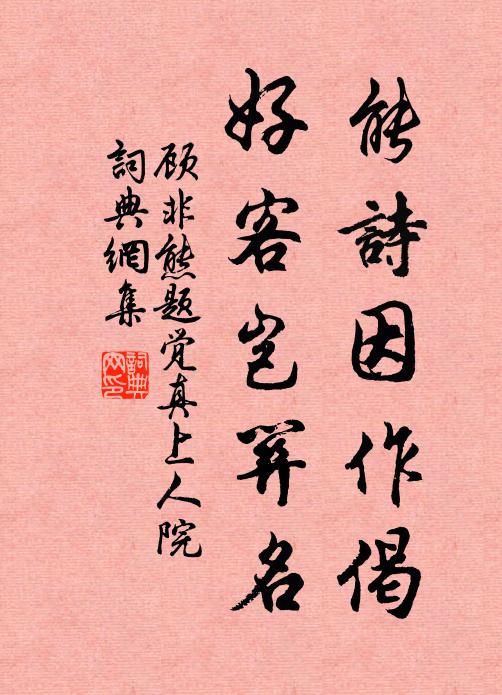 能詩因作偈
好客豈關名
顾非熊题觉真上人院
詞典網集
詞典網印